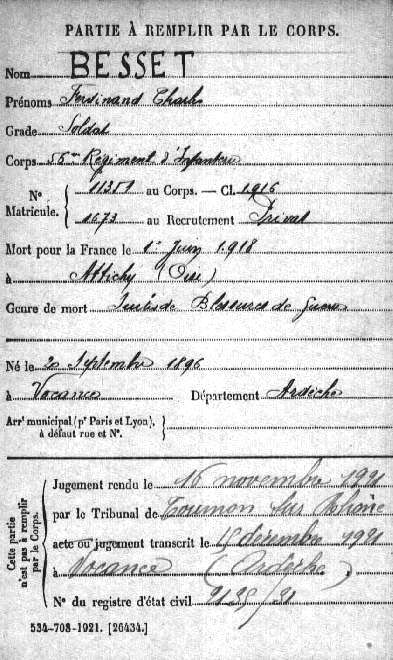 PARTIE À REMPLIR PAR LE CORPS.
Nom BESSET
Prénoms Ferdinand Charles
Grade Soldat
Corps 55me Régiment d'Infanterie
No Matricule. 11351 au Corps. — Cl. 1916
1673 au Recrutement Privas
Mort pour la France le 1er Juin 1918
à Attichy (Oise)
Genre de mort Suites de Blessures de Guerre
Né le 2 Septembre 1896
à Vocance Département Ardèche
Arrt municipal (pr Paris et Lyon),
à défaut rue et No.
Cette partie n'est pas à remplir par le Corps.
Jugement rendu le 16 novembre 1921
par le Tribunal de Tournon sur Rhône
acte ou jugement transcrit le décembre 1921
à Vocance (Ardèche)
No du registre d'état civil /21
534-708-1921. [26434.]